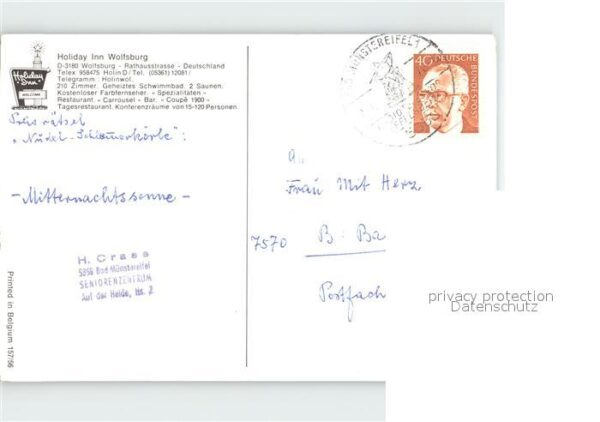 Holiday Inn Wolfsburg
D-3180 Wolfsburg - Rathausstrasse - Deutschland
Telex 958475 Holin D / Tel. (05361) 12081 /
Telegramm : Holinwol.
210 Zimmer. Geheiztes Schwimmbad. 2 Saunen.
Kostenloser Farbfernseher. - Spezialitäten -
Restaurant. - Carrousel - Bar. - Coupé 1900 -
Tagesrestaurant. Konferenzräume von 15-120 Personen.
Holiday Inn
WELCOME
MÜNSTEREIFEL 1
40 DEUTSCHE BUNDESPOST
Preisrätsel
"Nudel-Schlemmerkörbe":
- Mitternachtssonne -
An
Frau Mit Herz
7570 B.-Ba
Postfach
H. Crass
5358 Bad Münstereifel
SENIORENZENTRUM
Auf der Heide, Hs. 2
Printed in Belgium 157/56
privacy protection
Datenschutz